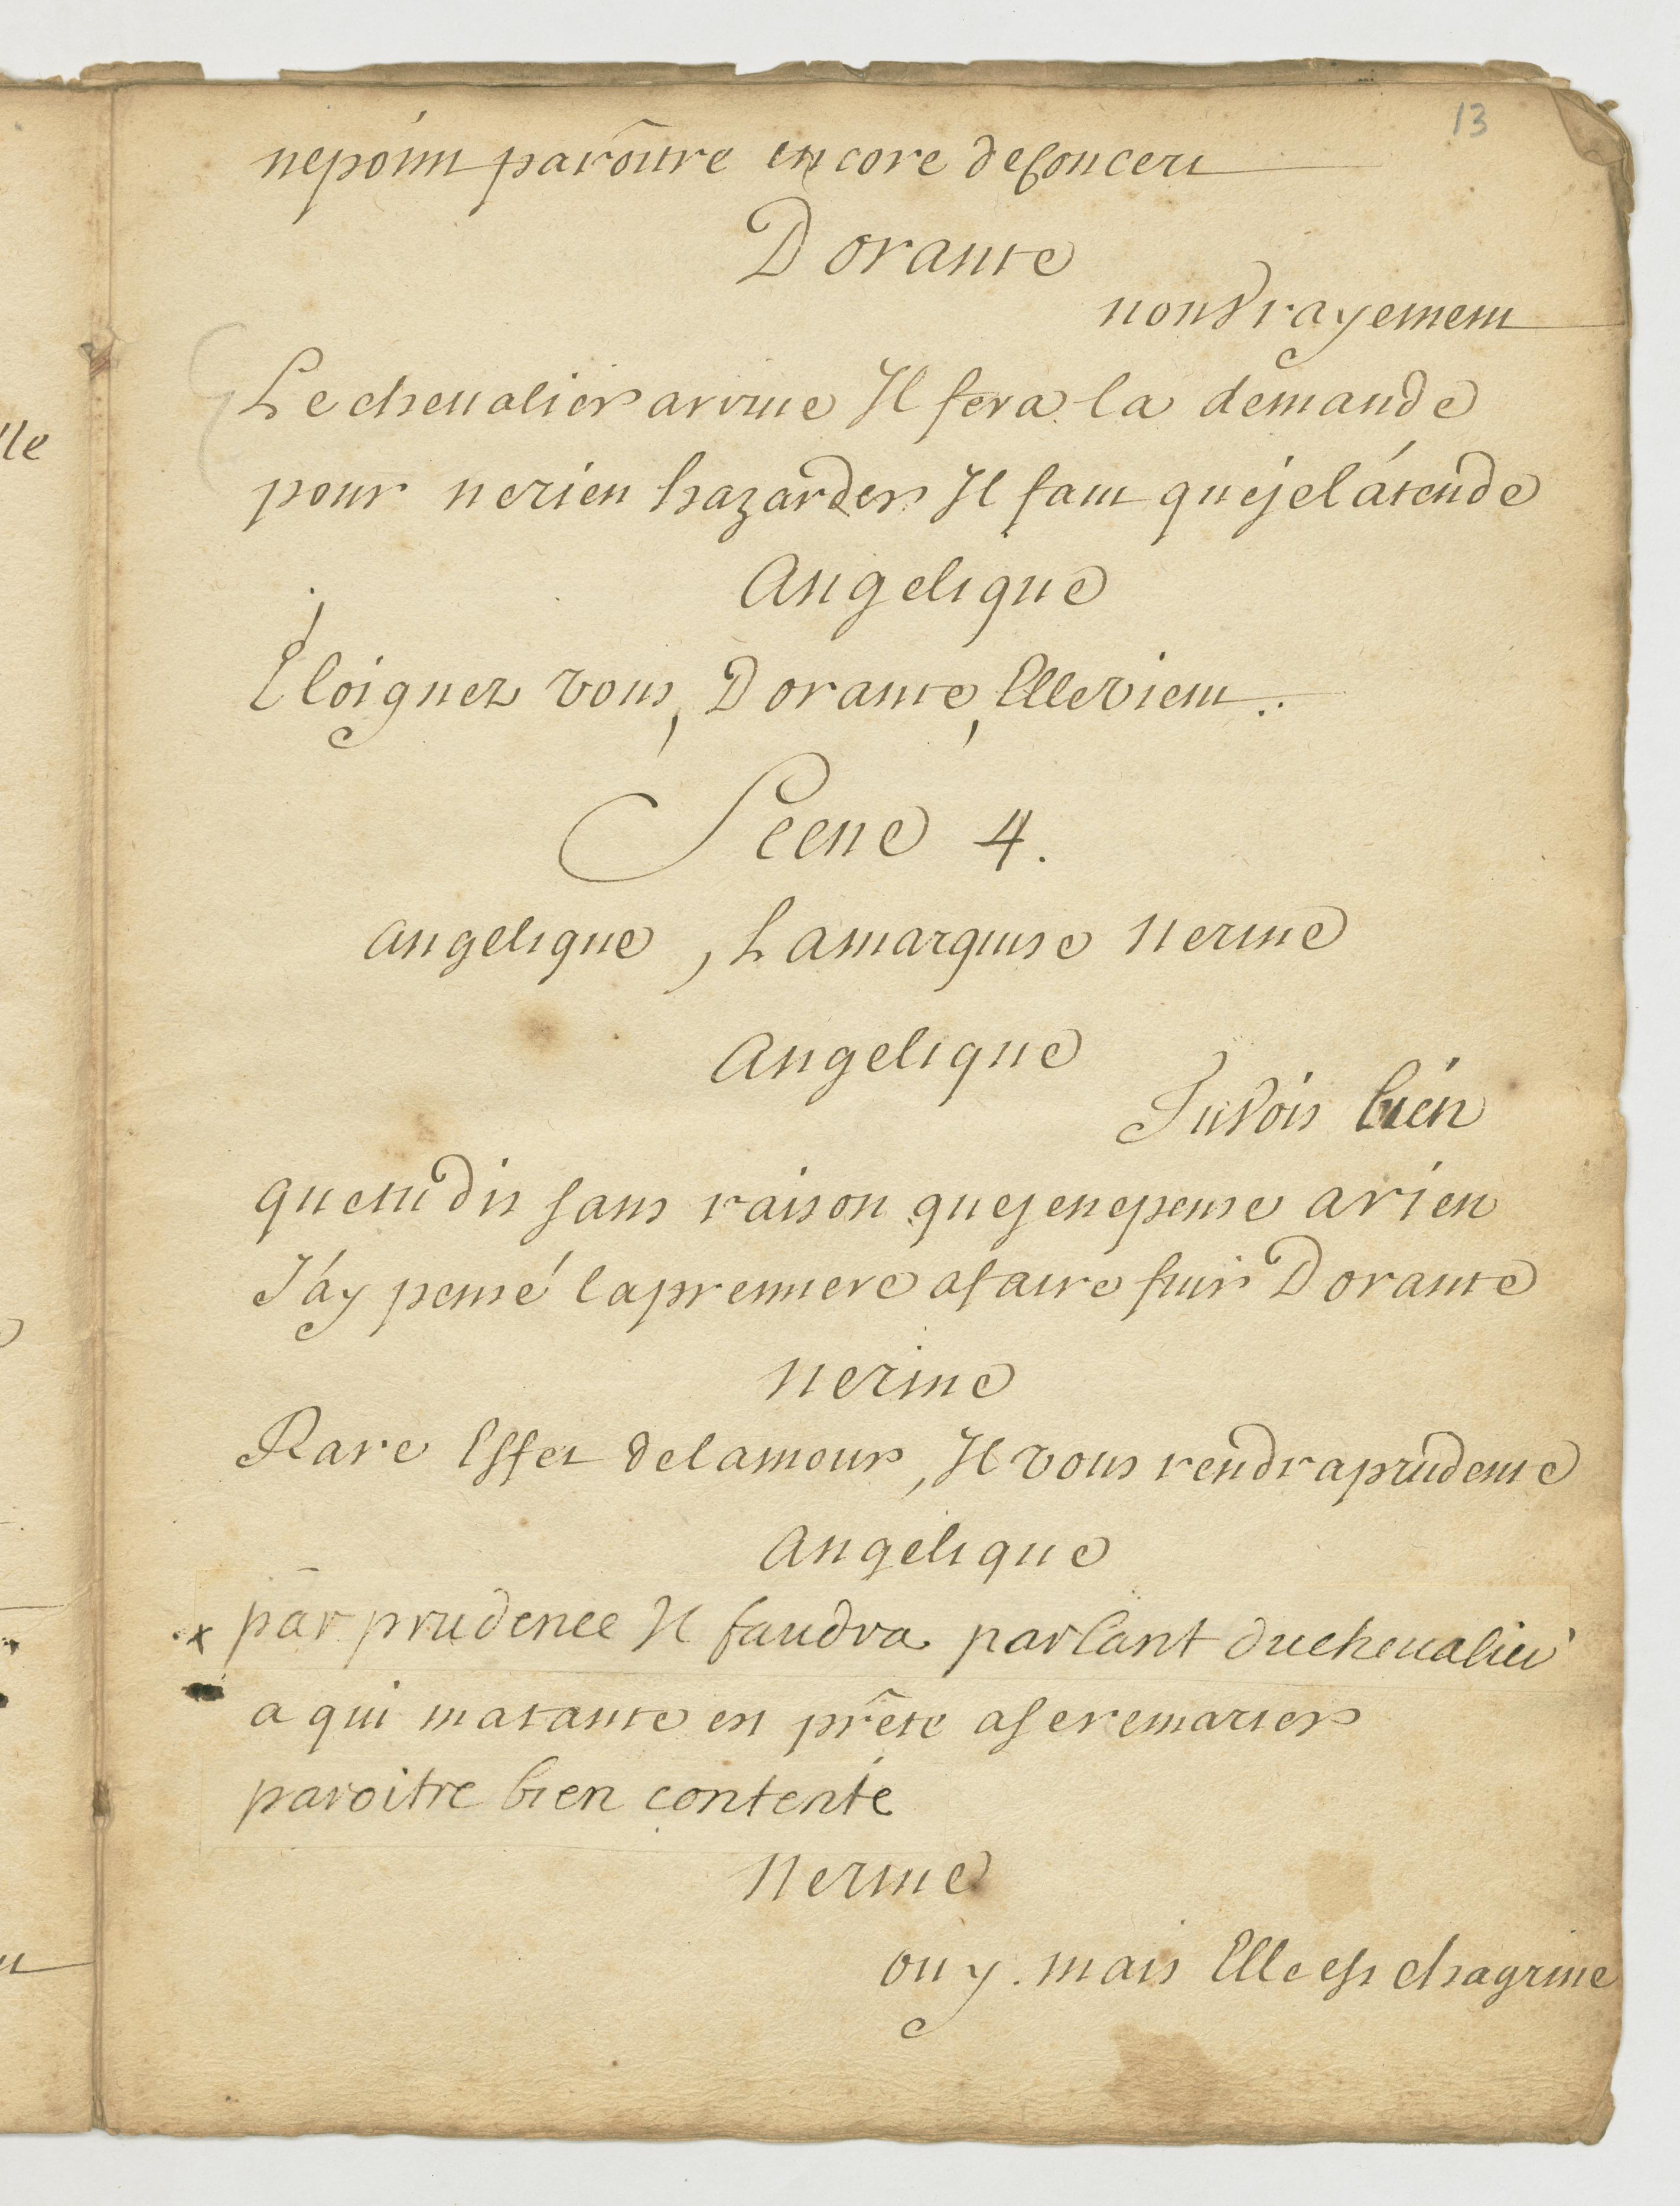 13
ne point parôitre encore de concert
Dorante
non vrayement
Le chevalier arrive Il fera la demande
pour ne rien hazarder Il faut que je l'átende
Angelique
Eloignez vous, Dorante, Elle vient..
Scene 4.
angelique, La marquise Nerine
Angelique
Tu vois bien
que tu dis sans raison que je ne pense a rien
J'áy pensé la premiere a faire fuir Dorante
Nerine
Rare Effet de lamour, Il vous rendra prudente
Angelique
x par prudence Il faudra parlant du chevalier
a qui ma tante est prête a se remarier
paroitre bien contente
Nerine
ouy. mais Elle est chagrine